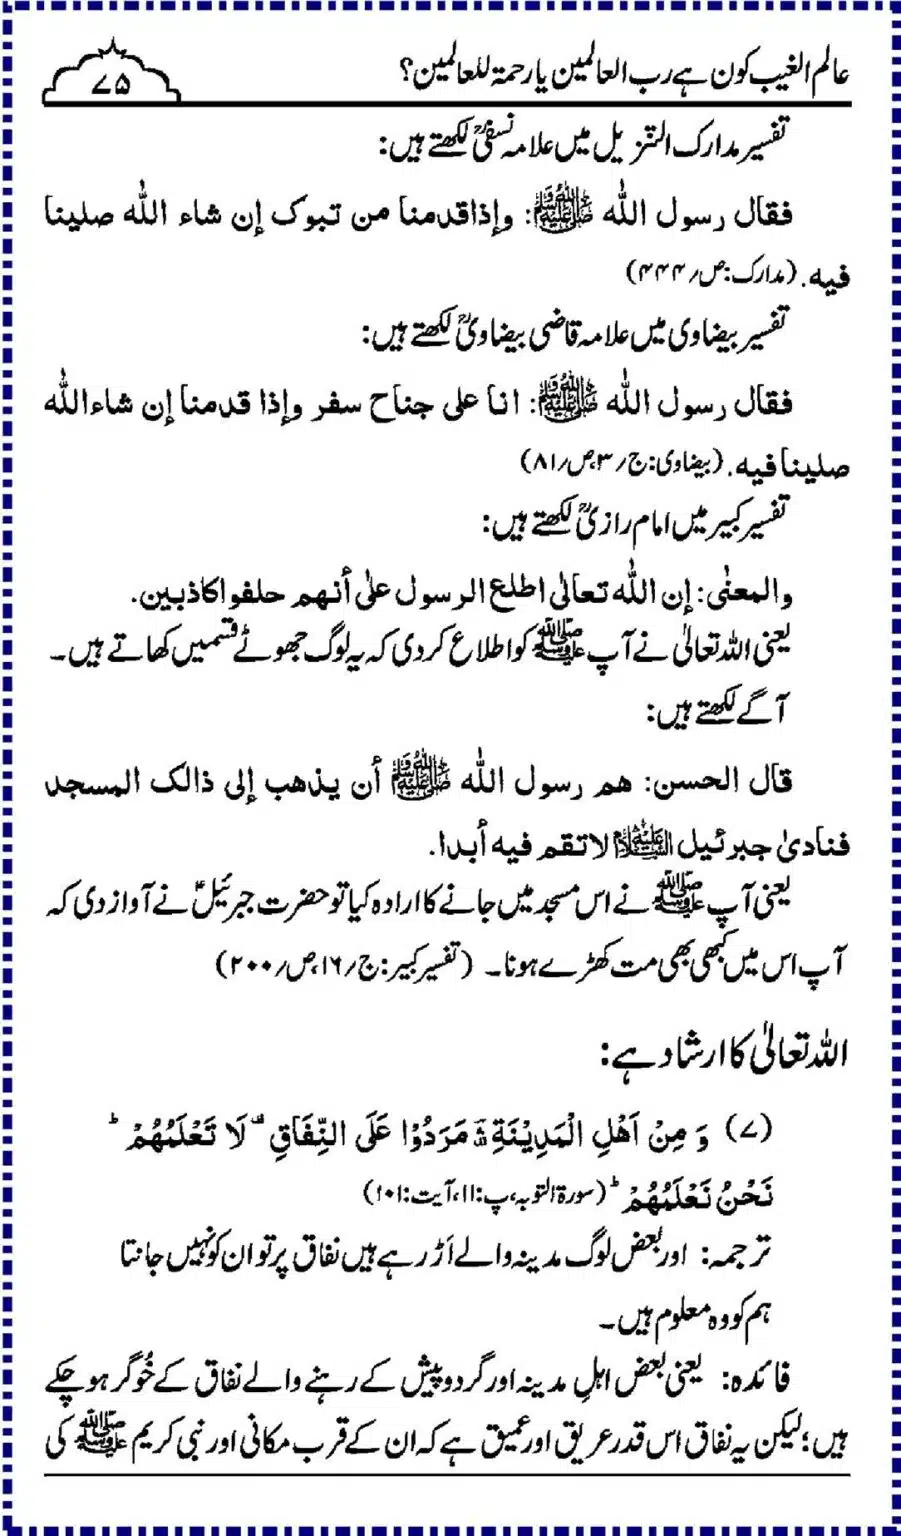 عالم الغیب کون ہے رب العالمین یا رحمۃ للعالمین؟
۷۵
تفسیر مدارک التنزیل میں علامہ نسفیؒ لکھتے ہیں:
فقال رسول اللہ ﷺ: وإذاقدمنا من تبوک إن شاء اللہ صلینا
فیه. (مدارک: ص؍ ۴۴۴)
تفسیر بیضاوی میں علامہ قاضی بیضاویؒ لکھتے ہیں:
فقال رسول اللہ ﷺ: انا علی جناح سفر وإذا قدمنا إن شاءاللہ
صلینا فیه. (بیضاوی: ج؍ ۳،ص؍ ۸۱)
تفسیر کبیر میں امام رازیؒ لکھتے ہیں:
والمعنٰی: إن اللہ تعالیٰ اطلع الرسول علیٰ أنهم حلفوا کاذبین.
یعنی اللہ تعالیٰ نے آپ ﷺ کو اطلاع کردی کہ یہ لوگ جھوٹے قسمیں کھاتے ہیں۔
آگے لکھتے ہیں:
قال الحسن: هم رسول اللہ ﷺ أن یذهب إلی ذالک المسجد
فنادیٰ جبرئیل علیہ السلام لاتقم فیه أبدا.
یعنی آپ ﷺ نے اس مسجد میں جانے کا ارادہ کیا تو حضرت جبرئیلؑ نے آواز دی کہ
آپ اس میں کبھی بھی مت کھڑے ہونا۔ (تفسیر کبیر: ج؍ ۱۶،ص؍ ۲۰۰)
اللہ تعالیٰ کا ارشاد ہے:
(۷) وَ مِنْ اَهْلِ الْمَدِیْنَةِ ؔۛ مَرَدُوْا عَلَی النِّفَاقِ ۟ لَا تَعْلَمُهُمْ ؕ
نَحْنُ نَعْلَمُهُمْ ؕ (سورۃ التوبہ، پ:۱۱، آیت:۱۰۱)
ترجمہ: اور بعض لوگ مدینہ والے اَڑ رہے ہیں نفاق پر تو ان کو نہیں جانتا
ہم کو وہ معلوم ہیں۔
فائدہ: یعنی بعض اہلِ مدینہ اور گرد و پیش کے رہنے والے نفاق کے خُوگر ہو چکے
ہیں؛ لیکن یہ نفاق اس قدر عریق اور عمیق ہے کہ ان کے قرب مکانی اور نبی کریم ﷺ کی